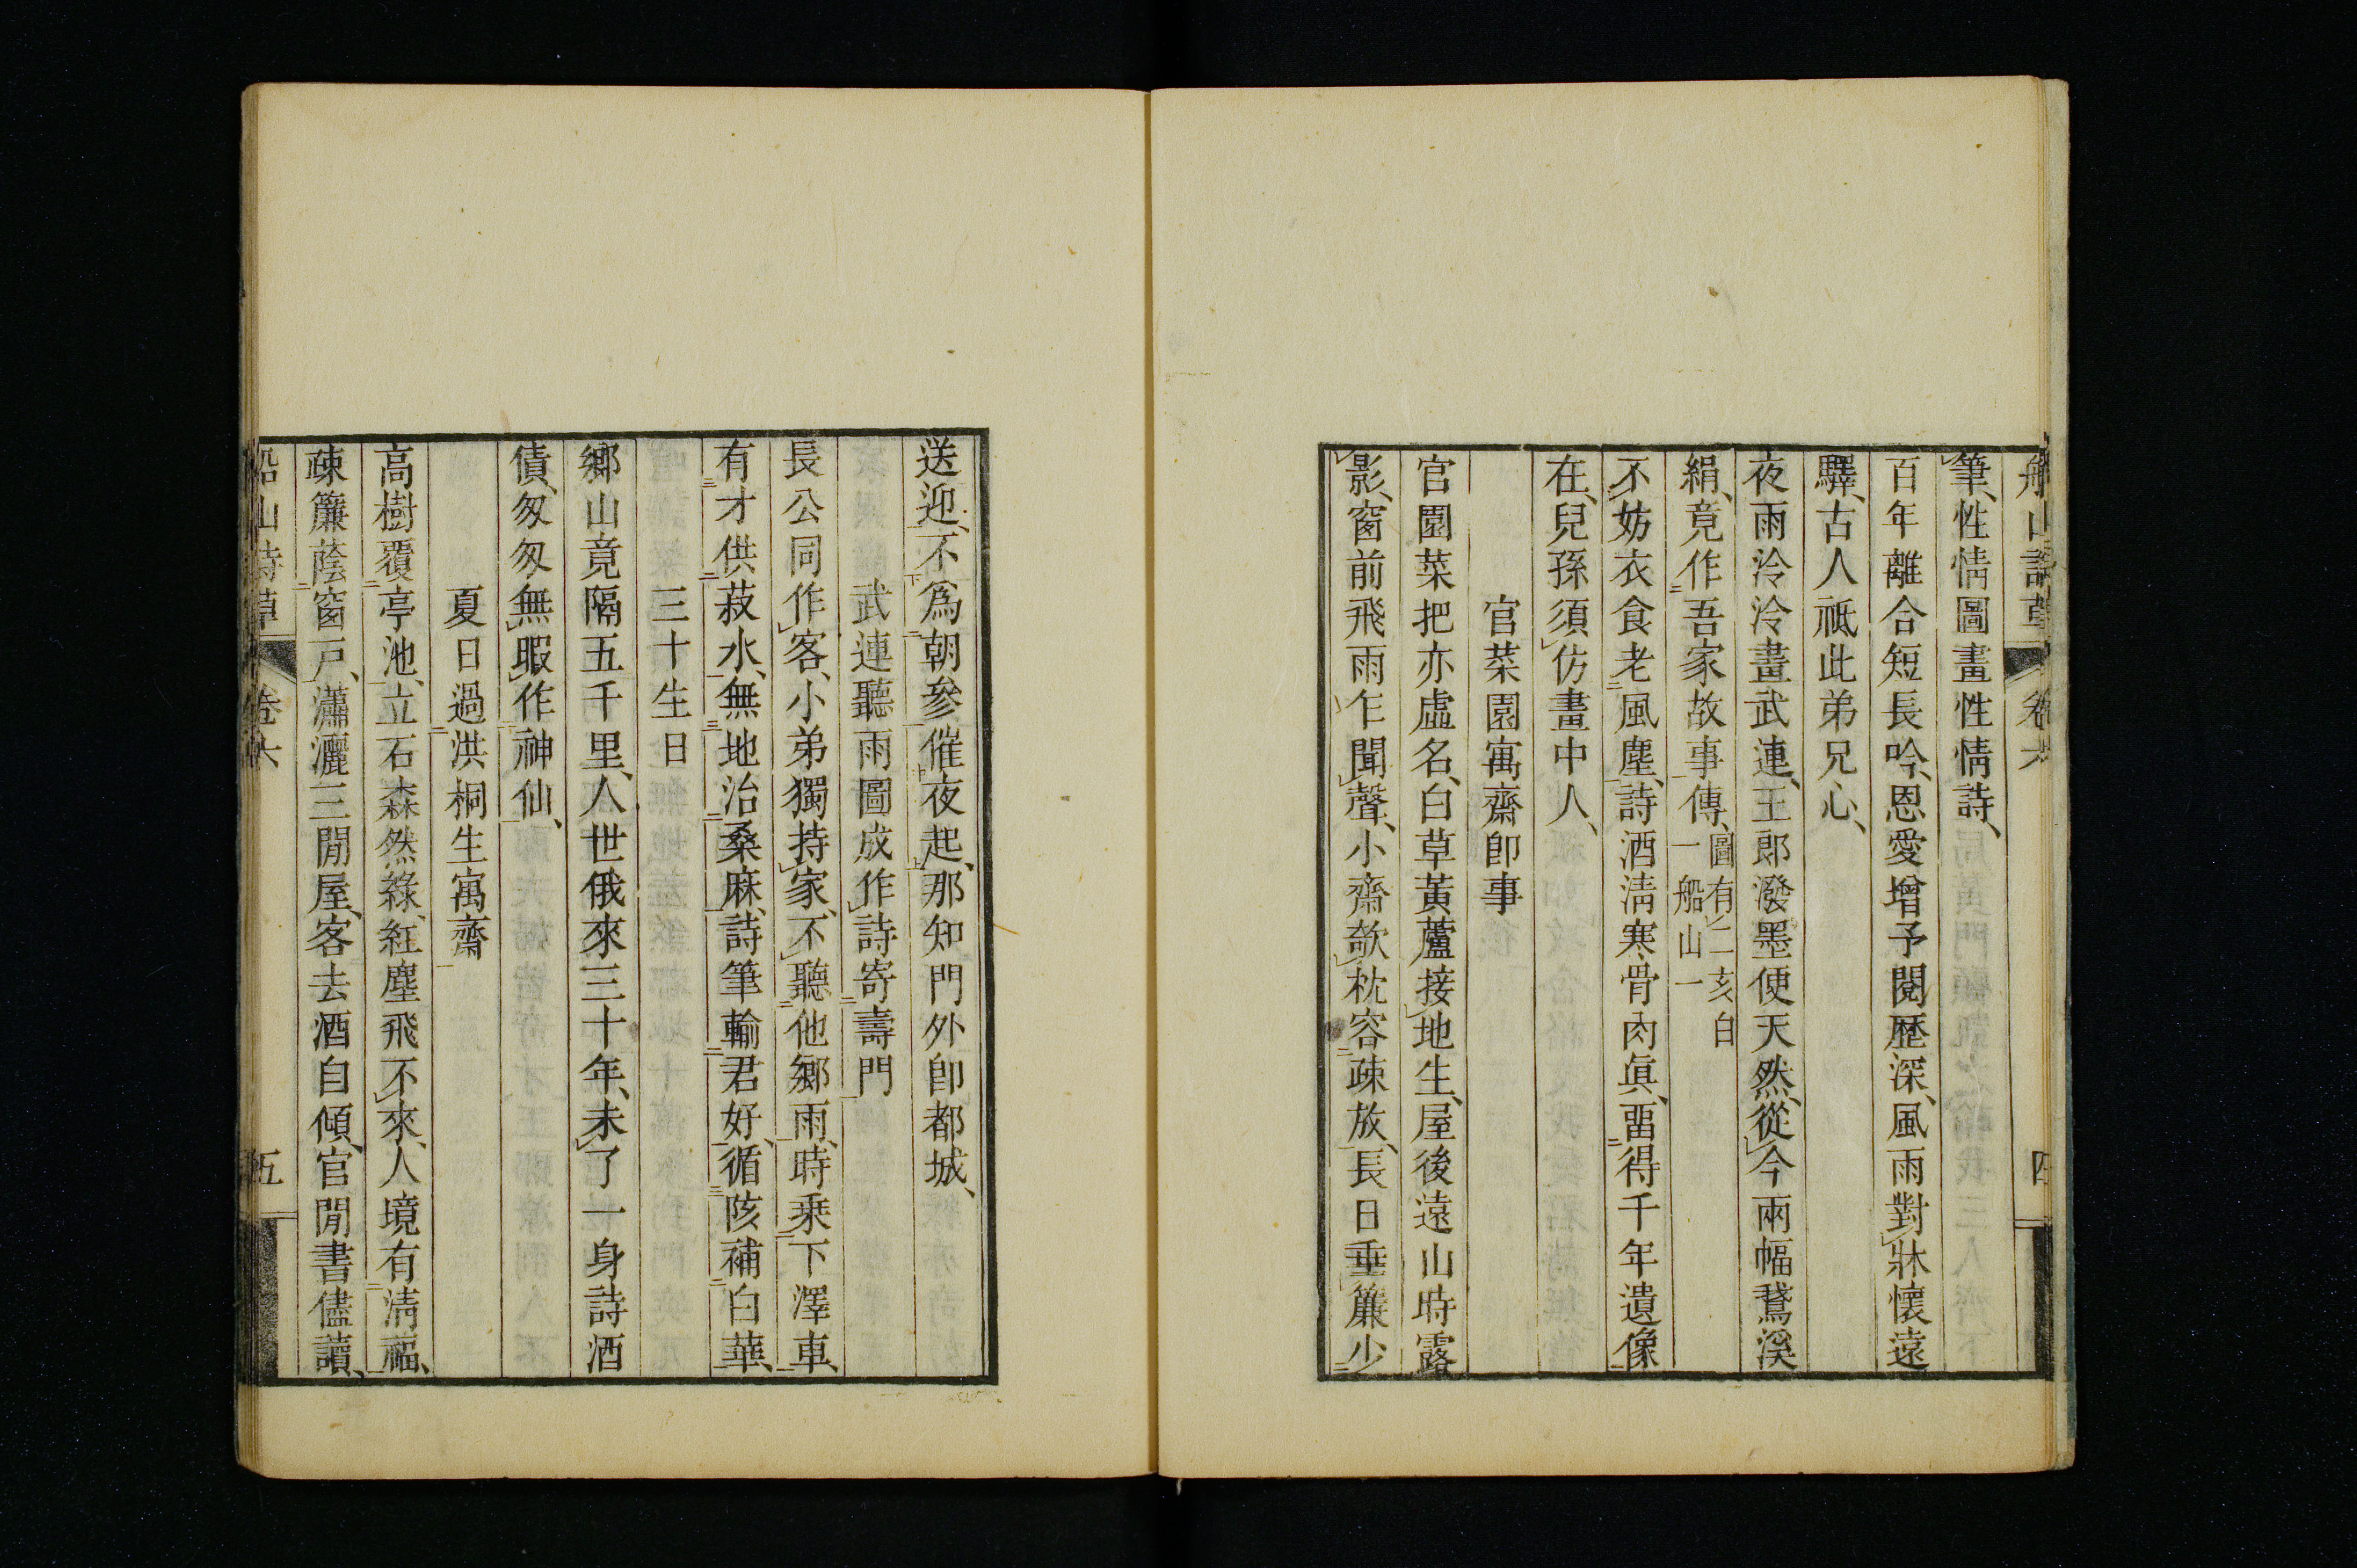 船山詩草 卷六 四
筆、性情圖畫性情詩、
百年離合短長吟、恩愛增予閱歷深、風雨對牀懷遠
驛、古人祗此弟兄心、
夜雨泠泠畫武連、王郎潑墨便天然、從今兩幅鵞溪
絹、竟作吾家故事傳、圖有二亥白一船山一
不妨衣食老風塵、詩酒淸寒骨肉眞、畱得千年遺像
在、兒孫須仿畫中人、
官菜園寓齋卽事
官園菜把亦虛名、白草黃蘆接地生、屋後遠山時露
影、窗前飛雨乍聞聲、小齋欹枕容疎放、長日垂簾少
送迎、不爲朝參催夜起、那知門外卽都城、
武連聽雨圖成作詩寄壽門
長公同作客、小弟獨持家、不聽他鄉雨、時乘下澤車、
有才供菽水、無地治桑麻、詩筆輸君好、循陔補白華、
三十生日
鄉山竟隔五千里、人世俄來三十年、未了一身詩酒
債、匆匆無暇作神仙、
夏日過洪桐生寓齋
高樹覆亭池、立石森然綠、紅塵飛不來、人境有淸福、
疎簾蔭窗戶、瀟灑三閒屋、客去酒自傾、官閒書儘讀、
船山詩草 卷六 五